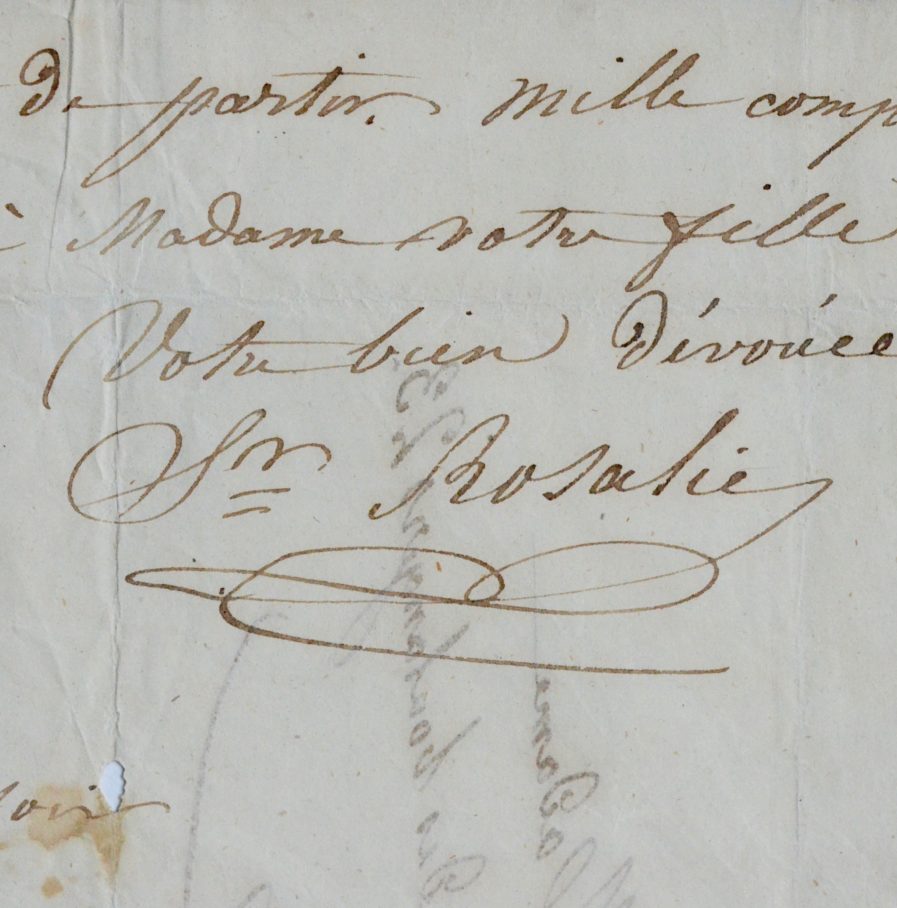 de partir. mille comp
à Madame votre fille
Votre bien dévouée
Sr Rosalie
soir